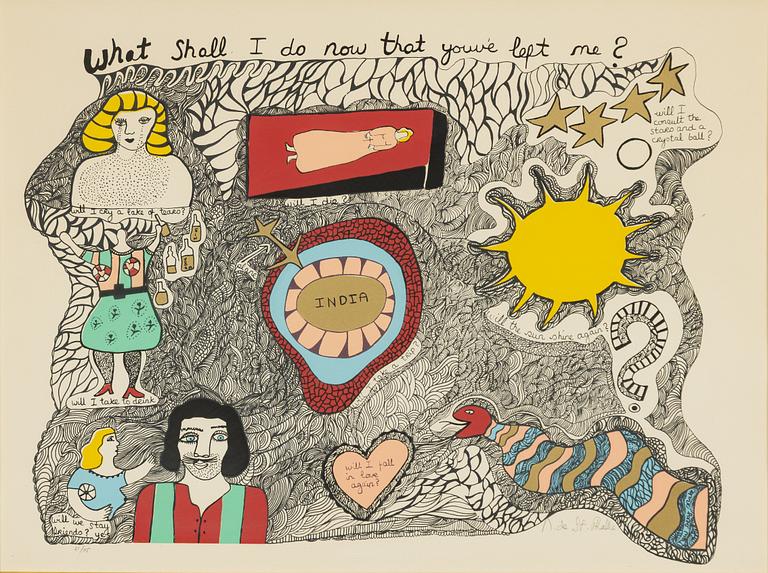 What shall I do now that you've left me?
will I
consult the
stars and a
crystal ball?
will I cry a lake of tears?
will I die?
INDIA
take a trip?
will the sun shine again?
will I take to drink
will I fall
in love
again?
will we stay
friends? yes
N. de St. Phalle